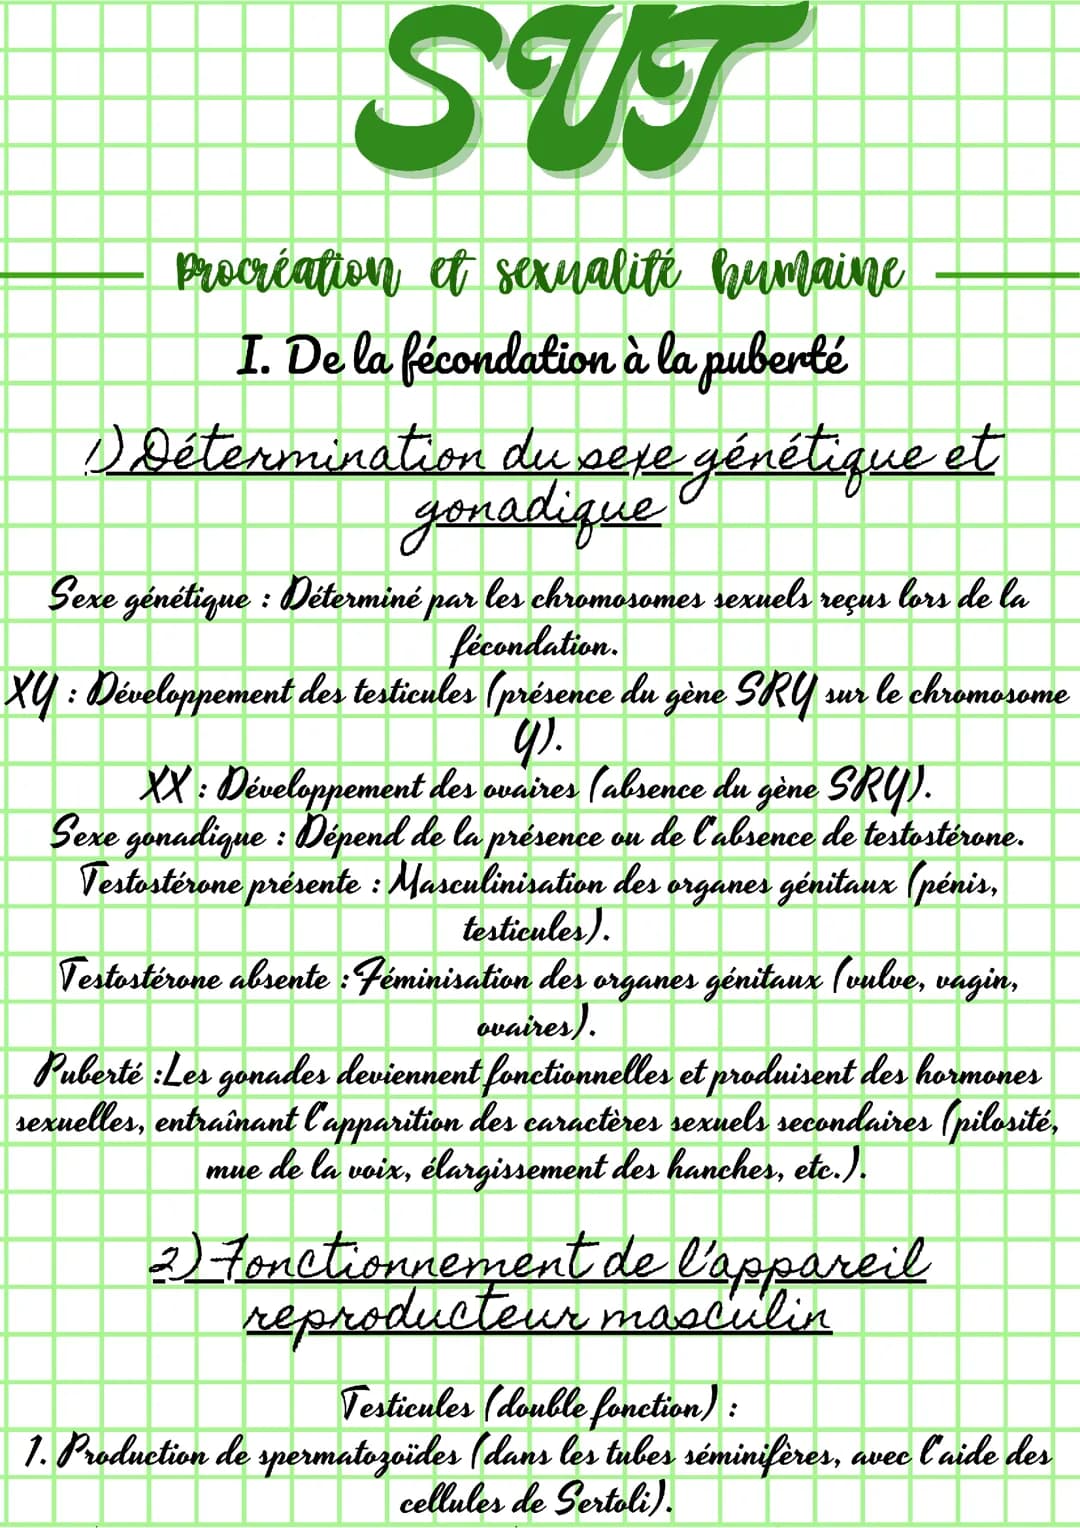 SVT
Procréation et sexualité humaine
I. De la fécondation à la puberté
1) Détermination du sexe génétique et
gonadique
Sexe génétique : Déterminé par les chromosomes sexuels reçus lors de la
fécondation.
XY : Développement des testicules (présence du gène SRY sur le chromosome
Y).
XX : Développement des ovaires (absence du gène SRY).
Sexe gonadique : Dépend de la présence ou de l'absence de testostérone.
Testostérone présente : Masculinisation des organes génitaux (pénis,
testicules).
Testostérone absente : Féminisation des organes génitaux (vulve, vagin,
ovaires).
Puberté :Les gonades deviennent fonctionnelles et produisent des hormones
sexuelles, entraînant l'apparition des caractères sexuels secondaires (pilosité,
mue de la voix, élargissement des hanches, etc.).
2) Fonctionnement de l'appareil
reproducteur masculin
Testicules (double fonction) :
1. Production de spermatozoïdes (dans les tubes séminifères, avec l'aide des
cellules de Sertoli).